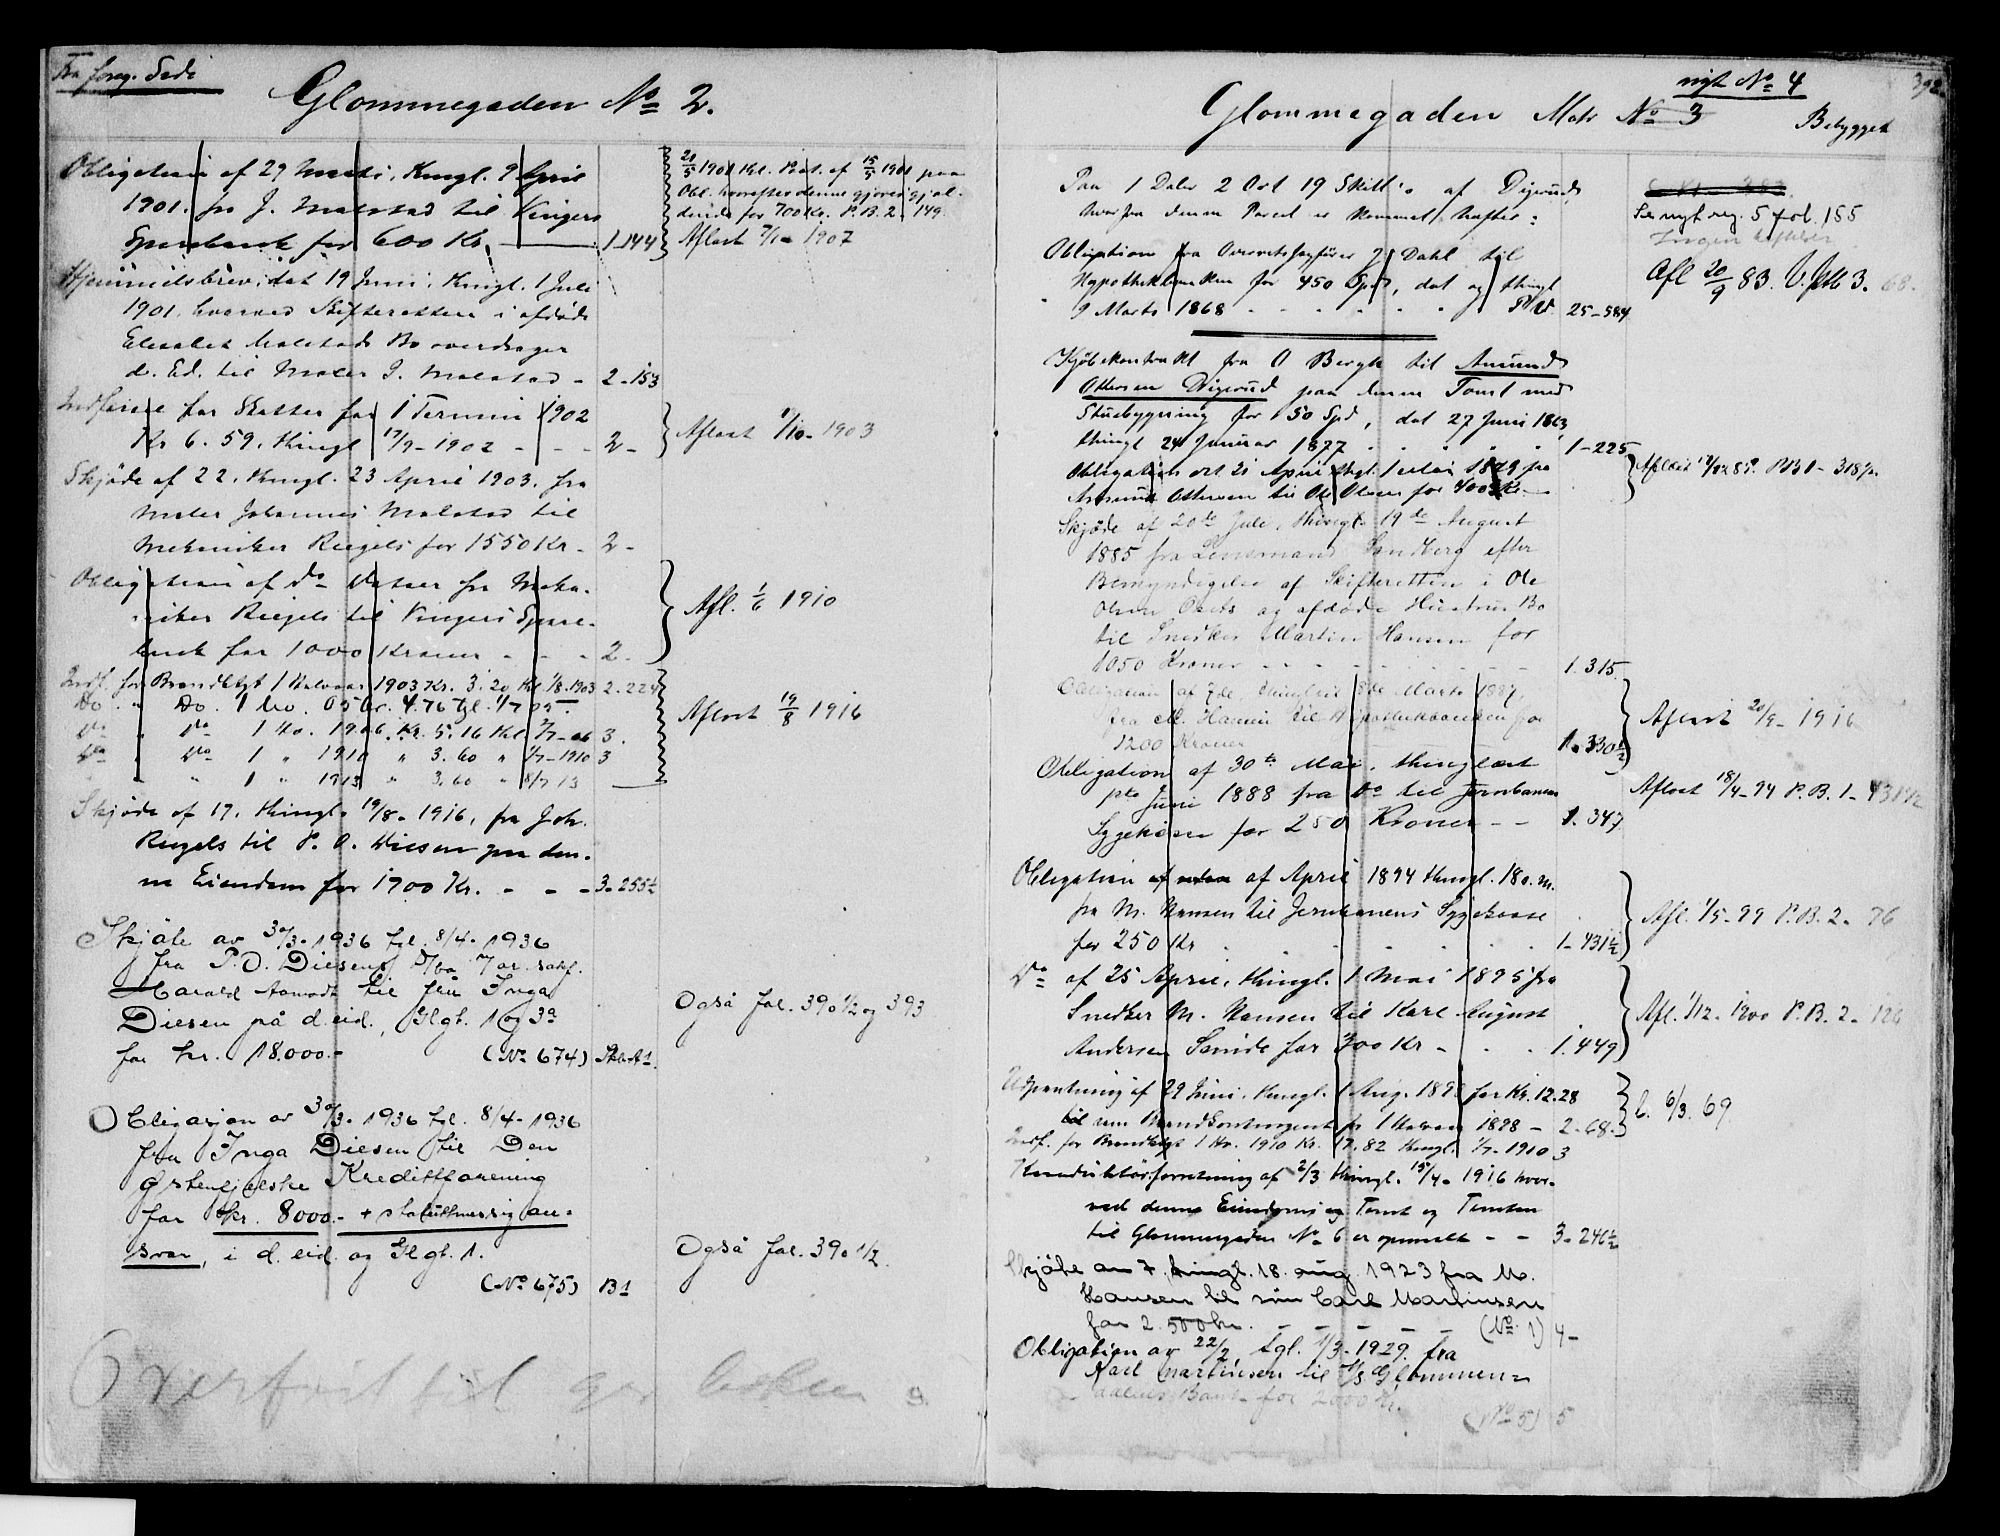 Fra foreg. Side
Glommegaden No 2.
Obligation af 29 Marts, thingl. 9 April
1901. fra J. Malstad til Vingers
Sparebank for 600 Kr. 1-144
21/5 1901 thl. Pat. af 15/5 1901 paa
Obl. hvorefter denne gjøres gjæl-
dende for 700 Kr. P.B. 2. 149.
Aflæst 1907
Hjemmelsbrev, dat 19 Juni, thingl. 1 Juli
1901, hvorved Skifteretten i afdøde
Malstads Bo overdrager
d. Ed. til Maler J. Malstad - 2-153
Indførsel for Skatter for 1 Termin 1902
Kr 6.59, thingl 17/9-1902 - - - 2-
Aflæst 1/10-1903
Skjøde af 22, thingl. 23 April 1903. fra
Maler Johannes Malstad til
Mekaniker Riegels for 1550 Kr. - 2-
Obligation af do Datoer fra Meka-
niker Riegels til Vingers Spare-
bank for 1000 Kroner - - - 2.
Afl. 1/6 1910
Indf. for Brandktgt 1 Halvaar 1903 Kr. 3.20 thl. 1/8.1903 2.224
Do. " Do. 1 do. 05 Kr. 4.76 tgl. 1/7 05
do " do 1 do. 1906. Kr. 5.16 thl 2/7-06 3.
do " do 1 " 1910 " 3.60 " 1/7-1910 3
" 1 " 1913 " 3.60 " 8/7 13
Aflæst 19/8 1916
Skjøde af 17, thingl. 19/8-1916, fra Joh.
Riegels til P. O. Diesen paa den-
ne Eiendom for 1900 Kr. - - - 3-255½
Skjøte av 30/3-1936 tgl. 8/4-1936
fra P.O. Diesens
Harald til fru Inga
Diesen på d. eid., Glgt. 1 og 3a
for kr. 18.000.- (No 674)
Også fol. 390 1/2 og 393
Obligasjon av 30/3-1936 tgl. 8/4-1936
fra Inga Diesen til Den
Østenfjelske Kredittforening
for kr. 8000.- + statuttmessig an-
svar, i d. eid. og Glgt. 1.
(No 675) B1
Også fol. 390 1/2.
Overført til
nyt No 4
392.
Glommegaden Matr No 3
Bebygget
Paa 1 Daler 2 Ort 19 Skill. af Digerud,
hvorfra denne Parcel er kommet, hæfter:
Se nyt reg. 5 fol. 155
Ingen hæftelser
Obligation fra Overretssagfører J. Dahl til
Hypothekbanken for 450 Spd, dat og thingl
9 Marts 1868 - - - - - - 25-584
Afl 20/9 83. 3. 68.
Kjøbekontrakt fra O Bergh til Amund
Ottersen Digerud paa denne Tomt med
Stuebygning for 150 Spd, dat 27 Juni 1863,
thingl 24 Januar 1877 - - - - 1-225
Obligation dat 21 April thgl. 1 Mai 1879 fra
Amund Ottersen til Ole Olsen for 400 Kr.
Skjøde af 20de Juli, thingl. 19de August
1885 fra Lensmand Sandberg efter
Bemyndigelse af Skifteretten i Ole
Olsen og afdøde Hustrus Bo
til Snedker Martin Hansen for
1050 Kroner - - - - 1.315.
Obligation af 7de, thinglæst 8de Marts 1887,
fra M. Hansen til Hypothekbanken for
1200 Kroner 1.330½
Aflæst 20/9-1916
Obligation af 30te Mai, thinglæst
Juni 1888 fra do til Jernbanens
Sygekasse for 250 Kroner - - 1.347
Aflæst 18/4-94 P.B. 1-431½
Obligation af April 1894 thingl. 18 s.m.
fra M. Hansen til Jernbanens Sygekasse
for 250 Kr - - - - - - 1-431½
Afl. 1/5-99 P.B. 2-76
do af 25 April, thingl. 1 Mai 1895 fra
Snedker M. Hansen til Karl August
Andersen for 300 Kr - - - 1.449
Afl. 1/12-1900 P.B. 2-126
Udpantning af 29 Juni, thingl. 1 Aug. 1898 for Kr. 12.28
til Brandkontingent for 1 Halvaar 1898 - 2-68.
6/3. 69
Indf. for Brandktgt 1 Hv. 1910 Kr. 17.82 thingl. 1/7-1910 3
Konduktørforretning af 2/3 thingl. 15/4-1916 hvor-
ved denne Eiendoms Tomt og Tomten
til Glommegaden No 6 er opmaalt - - 3-246½
Skjøte av 7. tingl. 18. aug. 1923 fra M.
Hansen til søn Carl Martinsen
for 2.500 kr. - - - - (No 1) 4-
Obligation av 22/2 tgl. 1/3-1929 fra
Karl Martinsen til A/S Glommen-
dalens Bank for 2000 kr.
(No 5) 5